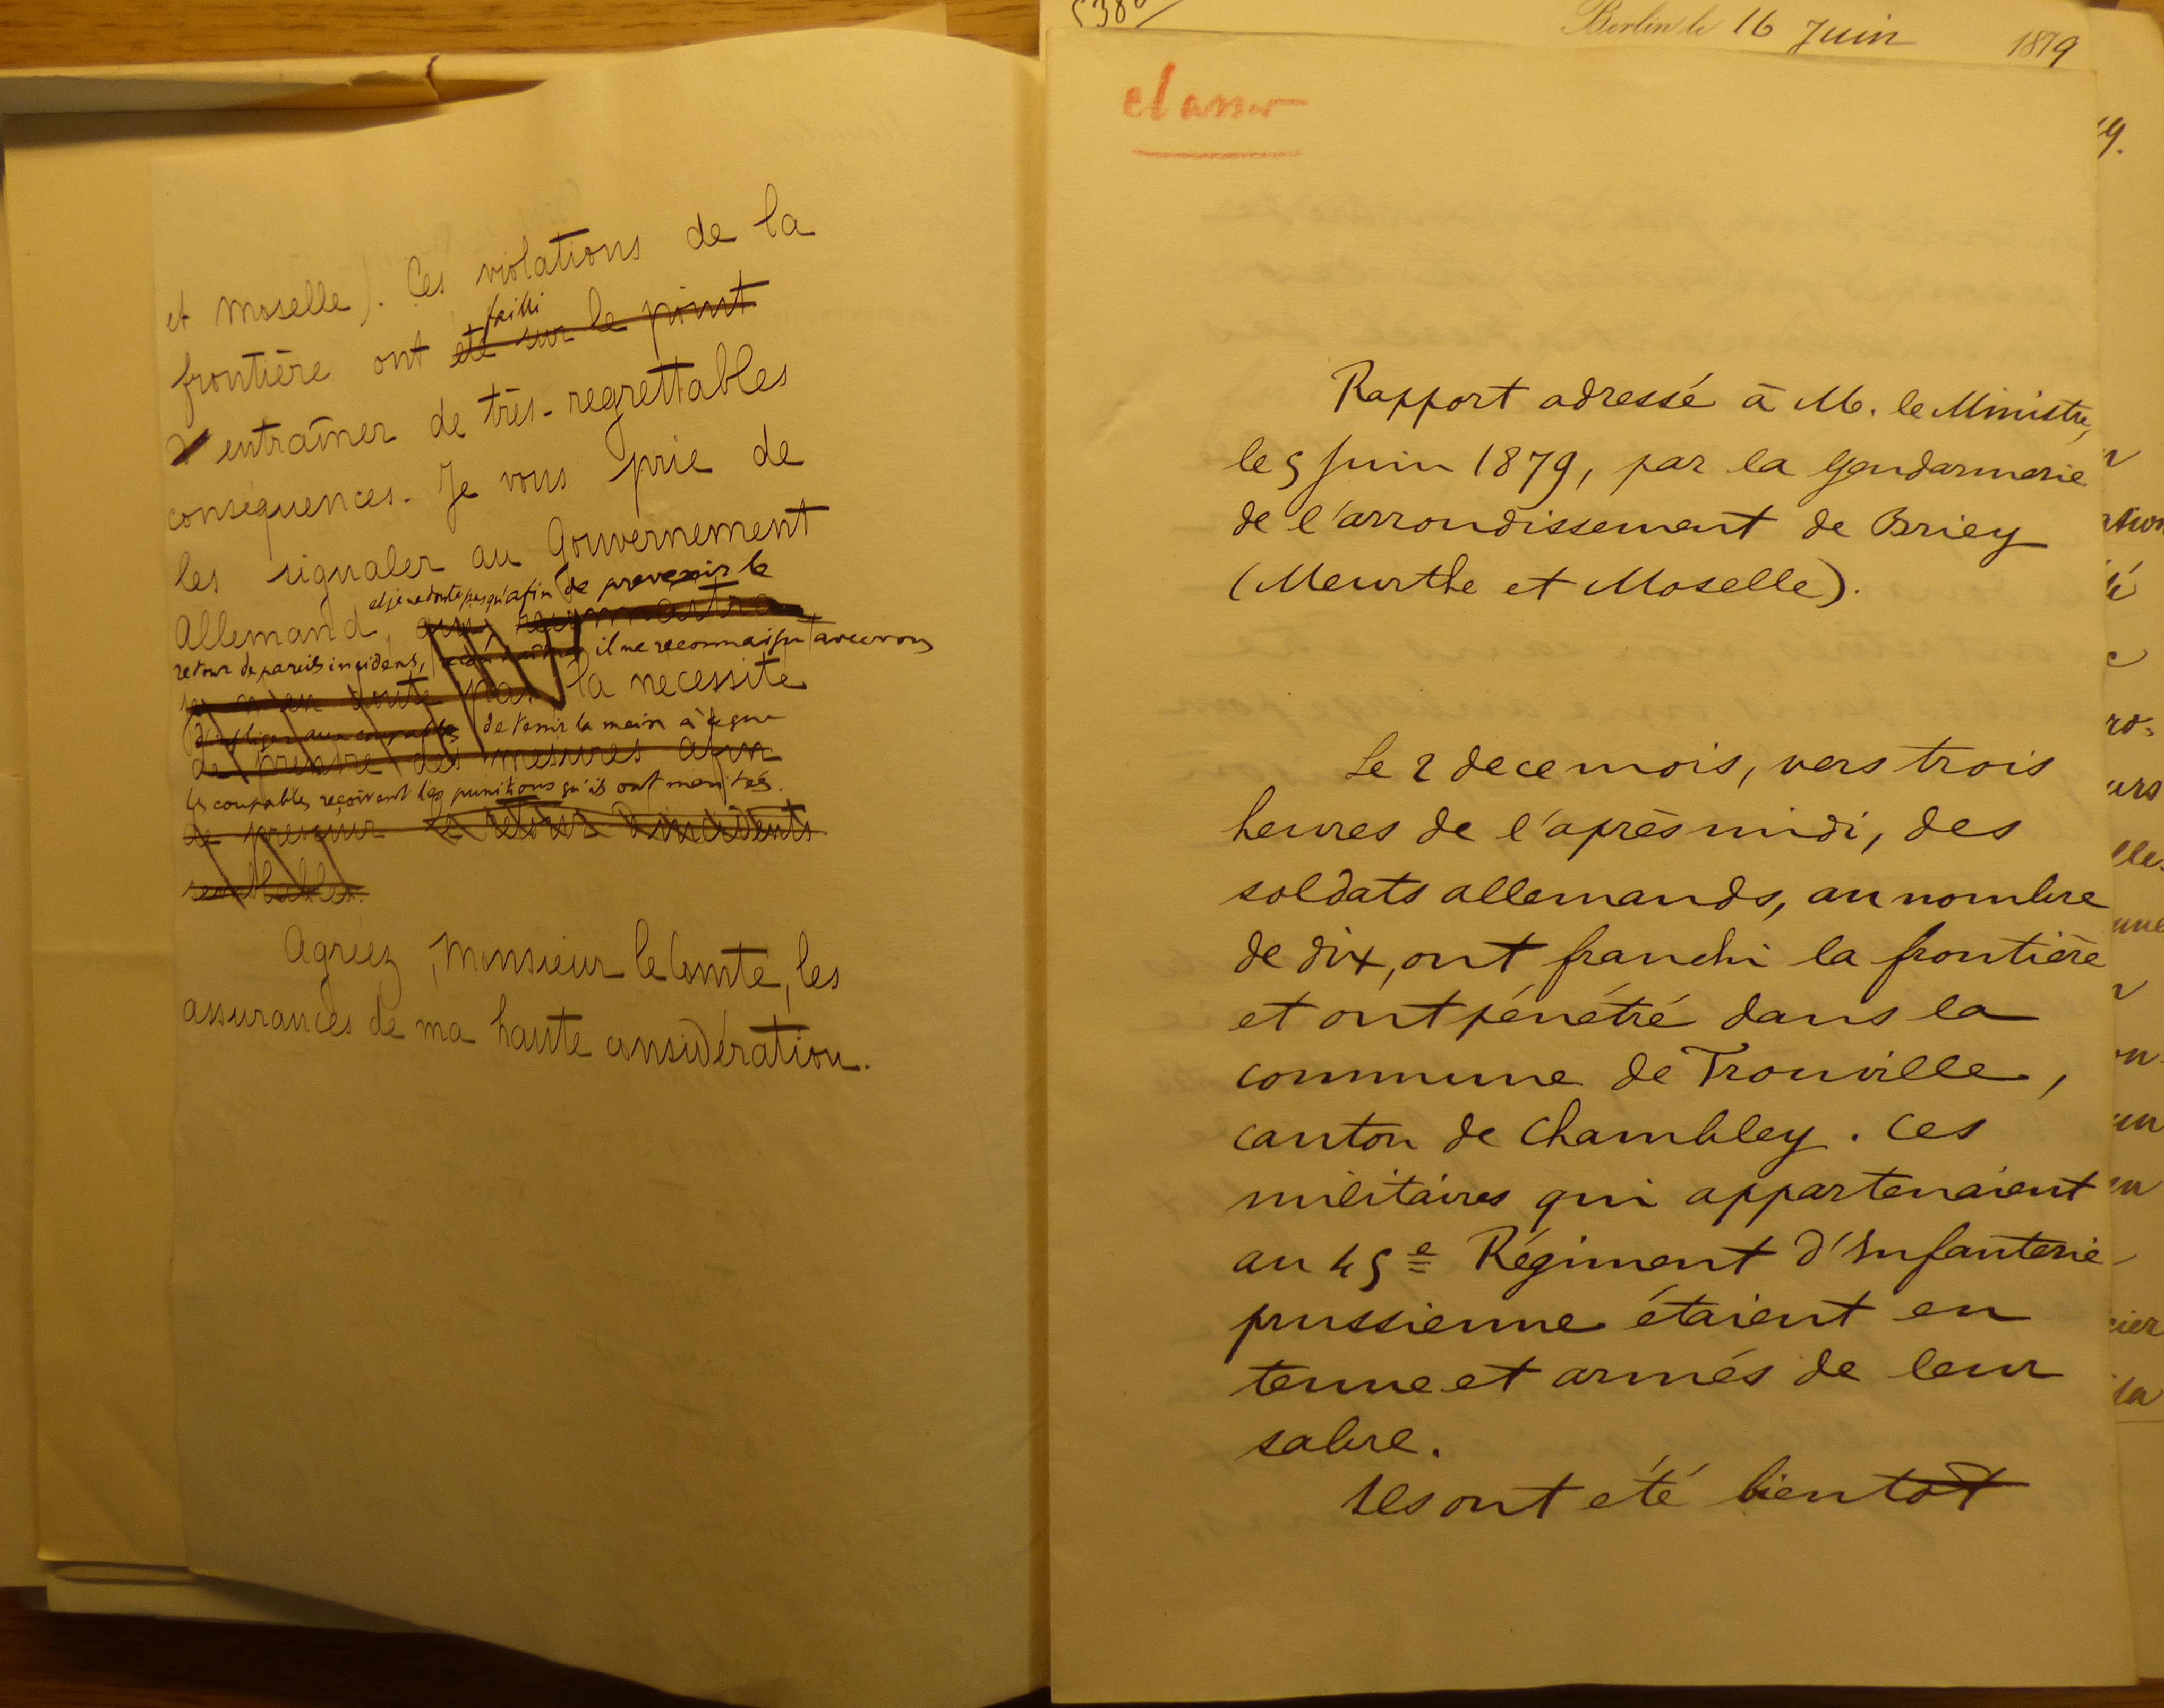 et Moselle). Ces violations de la
failli
frontière ont été sur le point
d'entraîner de très-regrettables
conséquences. Je vous prie de
les signaler au Gouvernement
et je ne doute pas qu'afin de prevenir le
Allemand, qui,
retour de pareils incidens, il ne reconnaisse avec vous
je n'en doute pas la necessité
d'infliger aux coupables de tenir la main à ce que
de prendre des mesures afin
les coupables reçoivent les punitions qu'ils ont meritées.
de prevenir le retour d'incidents
semblables.
Agréez, Monsieur le Comte, les
assurances de ma haute considération.
Berlin le 16 Juin 1879
classer
Rapport adressé à M. le Ministre,
le 5 Juin 1879, par la Gendarmerie
de l'arrondissement de Briey
(Meurthe et Moselle).
Le 2 de ce mois, vers trois
heures de l'après midi, des
soldats allemands, au nombre
de dix, ont franchi la frontière
et ont pénétré dans la
commune de Tronville,
canton de Chambley. Ces
militaires qui appartenaient
au 45e Régiment d'Infanterie
prussienne étaient en
tenue et armés de leur
sabre.
Ils ont été bientôt